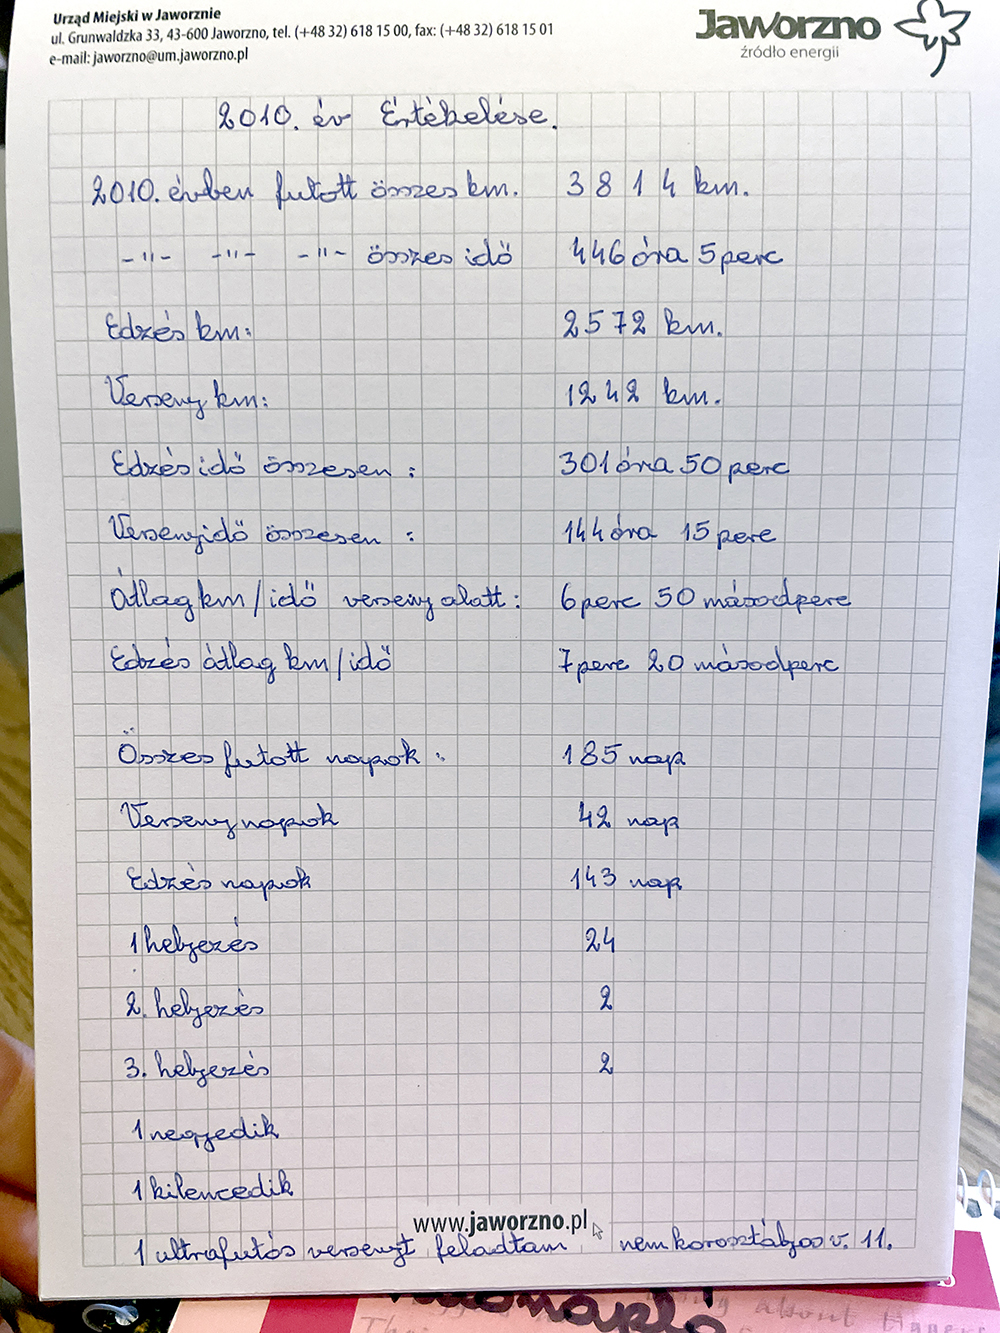 Urząd Miejski w Jaworznie
ul. Grunwaldzka 33, 43-600 Jaworzno, tel. (+48 32) 618 15 00, fax: (+48 32) 618 15 01
e-mail: jaworzno@um.jaworzno.pl
Jaworzno
źródło energii
2010. év Értékelése.
2010. évben futott összes km. 3814 km.
-"- -"- -"- összes idő 446 óra 5 perc
Edzés km: 2572 km.
Verseny km: 1242 km.
Edzés idő összesen: 301 óra 50 perc
Versenyidő összesen: 144 óra 15 perc
Átlag km/idő verseny alatt: 6 perc 50 másodperc
Edzés átlag km/idő 7 perc 20 másodperc
Összes futott napok: 185 nap
Verseny napok 42 nap
Edzés napok 143 nap
1 helyezés 24
2. helyezés 2
3. helyezés 2
1 negyedik
1 kilencedik
www.jaworzno.pl
1 ultrafutós versenyt feladtam nem korosztályos v. 11.
about